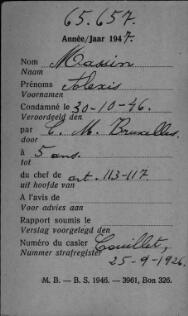 65.657.
Année/Jaar 1947.
Nom Massin
Naam
Prénoms Alexis
Voornamen
Condamné le 30-10-46.
Veroordeeld den
par C. M. Bruxelles.
door
à 5 ans.
tot
du chef de art. 113-117.
uit hoofde van
A l'avis de
Voor advies aan
Rapport soumis le
Verslag voorgelegd den
Numéro du casier Couillet,
Nummer strafregister 25-9-1926.
M. B. — B. S. 1946. — 3961, Bon 326.